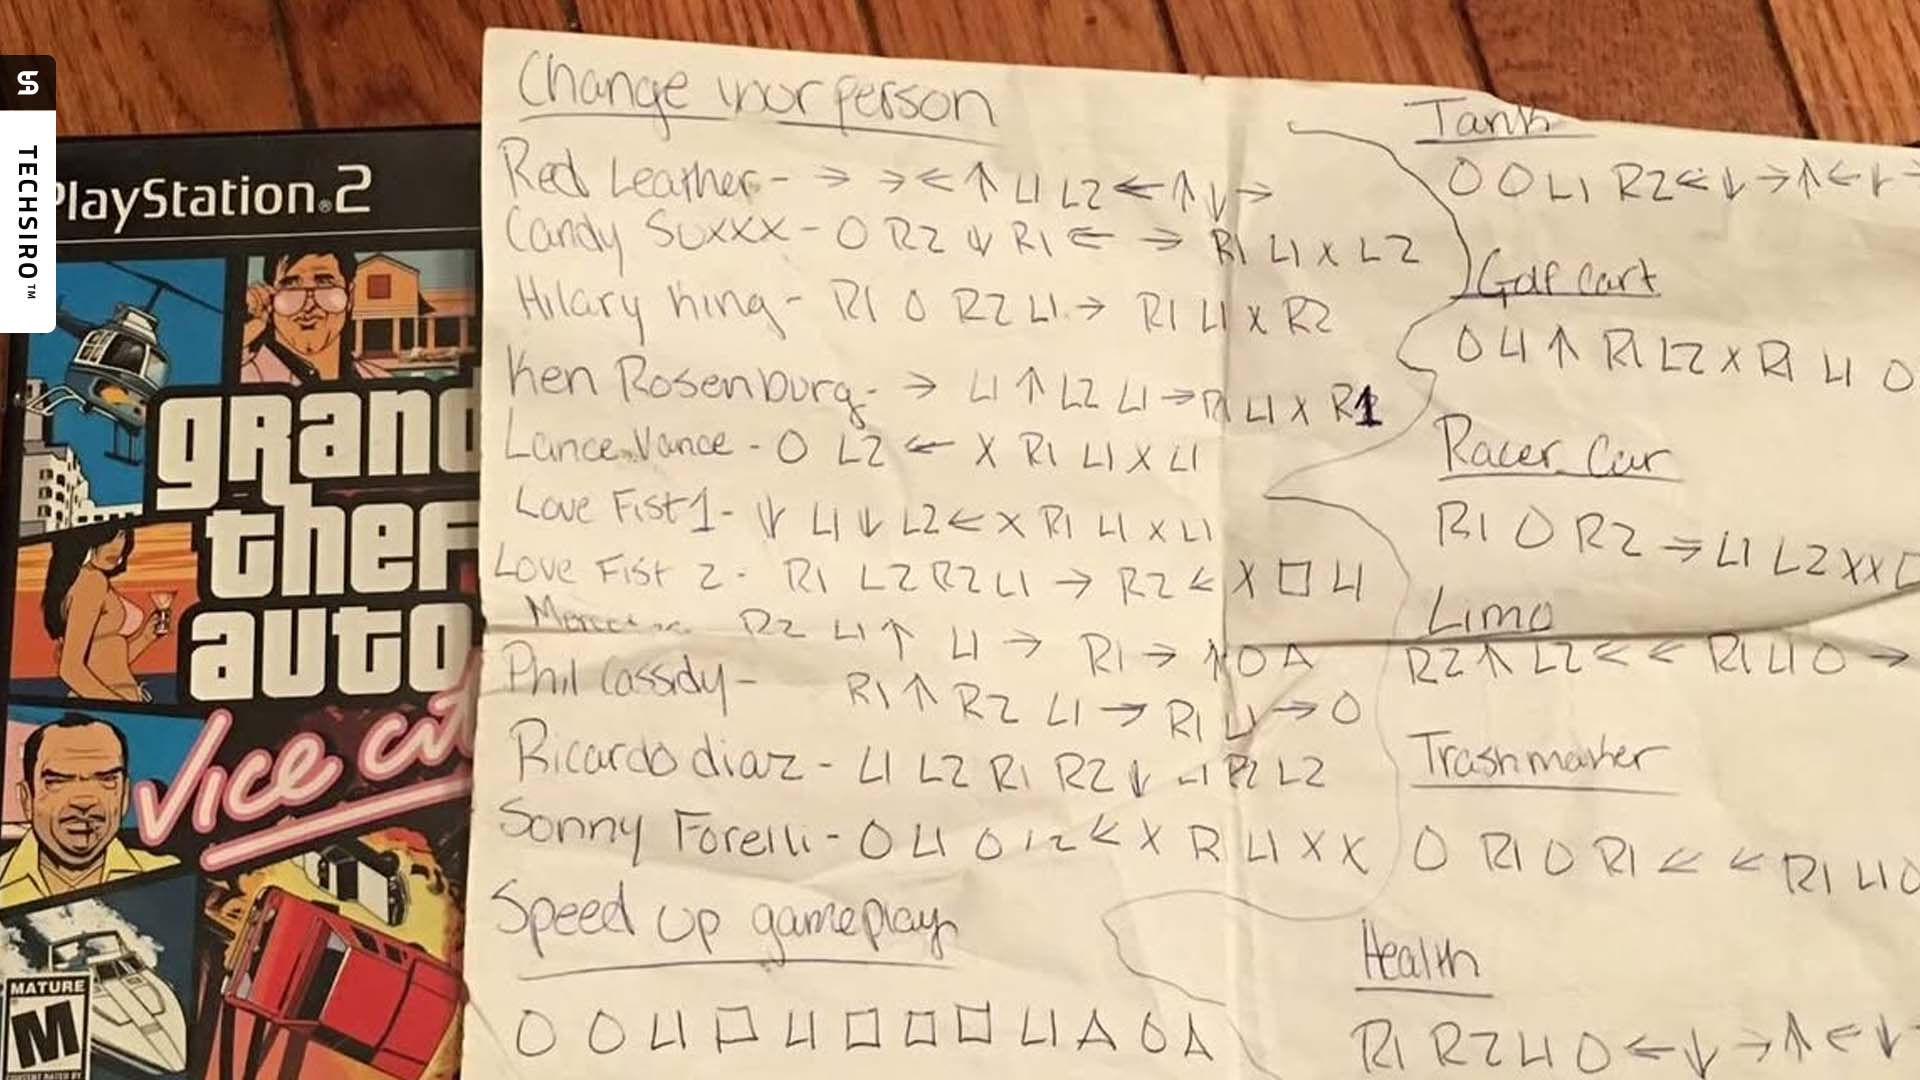 TECHSIRO™
PlayStation.2
grand
theft
auto
Vice City
MATURE
M
CONTENT RATED BY
Change your person
Red Leather - → → ← ↑ L1 L2 ← ↑ ↓ →
Candy Suxxx - O R2 ↓ R1 ← → R1 L1 X L2
Hilary King - R1 O R2 L1 → R1 L1 X R2
Ken Rosenburg - → L1 ↑ L2 L1 → R1 L1 X R1
Lance Vance - O L2 ← X R1 L1 X L1
Love Fist 1 - ↓ L1 ↓ L2 ← X R1 L1 X L1
Love Fist 2 - R1 L2 R2 L1 → R2 ← X □ L1
R2 L1 ↑ L1 → R1 → ↑ O △
Phil Cassidy - R1 ↑ R2 L1 → R1 L1 → O
Ricardo diaz - L1 L2 R1 R2 ↓ L1 R2 L2
Sonny Forelli - O L1 O L2 ← X R1 L1 X X
Speed up gameplay
O O L1 □ L1 □ □ □ L1 △ O △
Tank
O O L1 R2 ← ↓ → ↑ ← ↓ →
Golf cart
O L1 ↑ R1 L2 X R1 L1 O
Racer Car
R1 O R2 → L1 L2 X X □
Limo
R2 ↑ L2 ← ← R1 L1 O →
Trashmaster
O R1 O R1 ← ← R1 L1 O
Health
R1 R2 L1 O ← ↓ → ↑ ← ↓